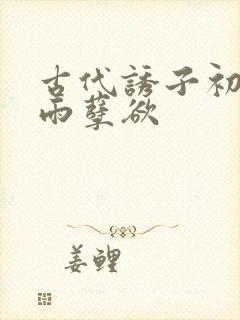 古代誘子初
雨孽欲
姜鲤